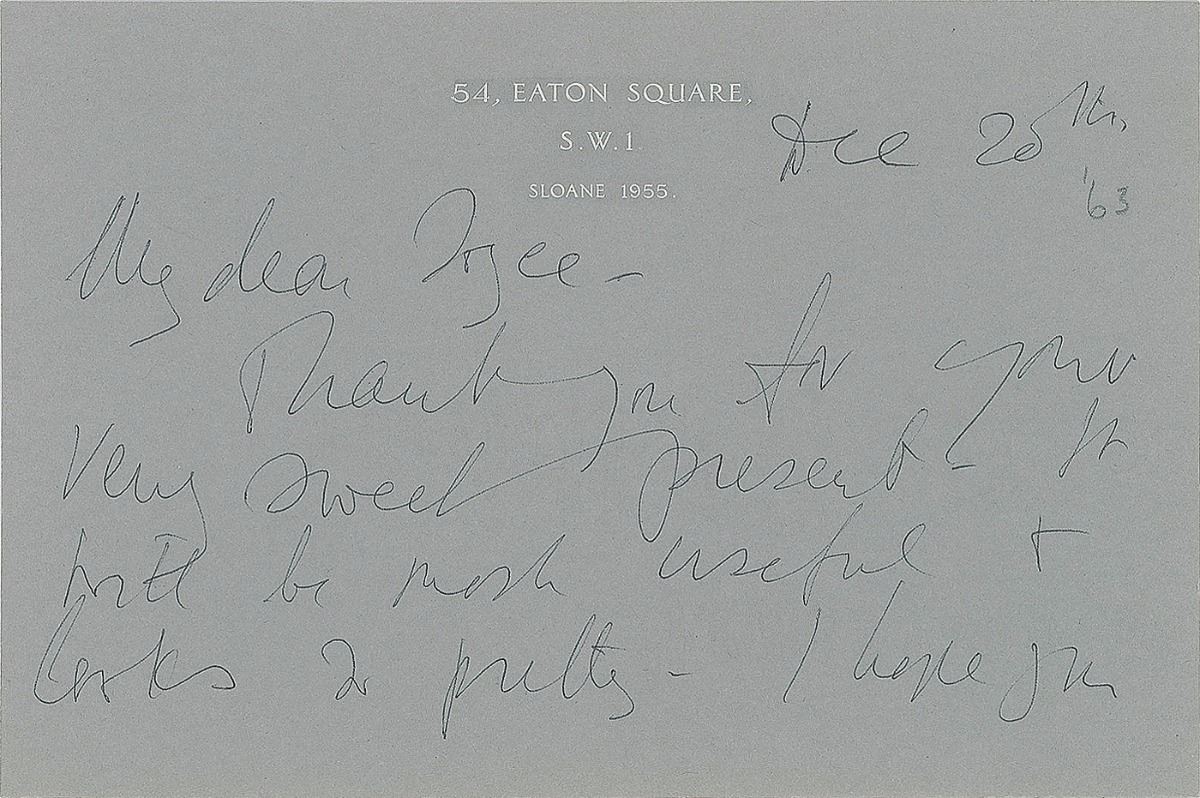 54, EATON SQUARE,
S.W.1.
SLOANE 1955.
Dec 20th
'63
My dear Joyce –
Thank you for your
very sweet present – It
will be most useful +
looks so pretty – I hope you